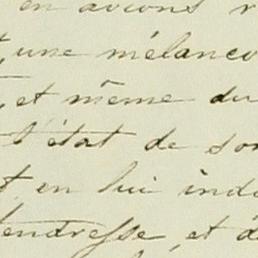 en avions
, une mélanco
, et même du
l'état de son
t en lui indi
tendresse, et d